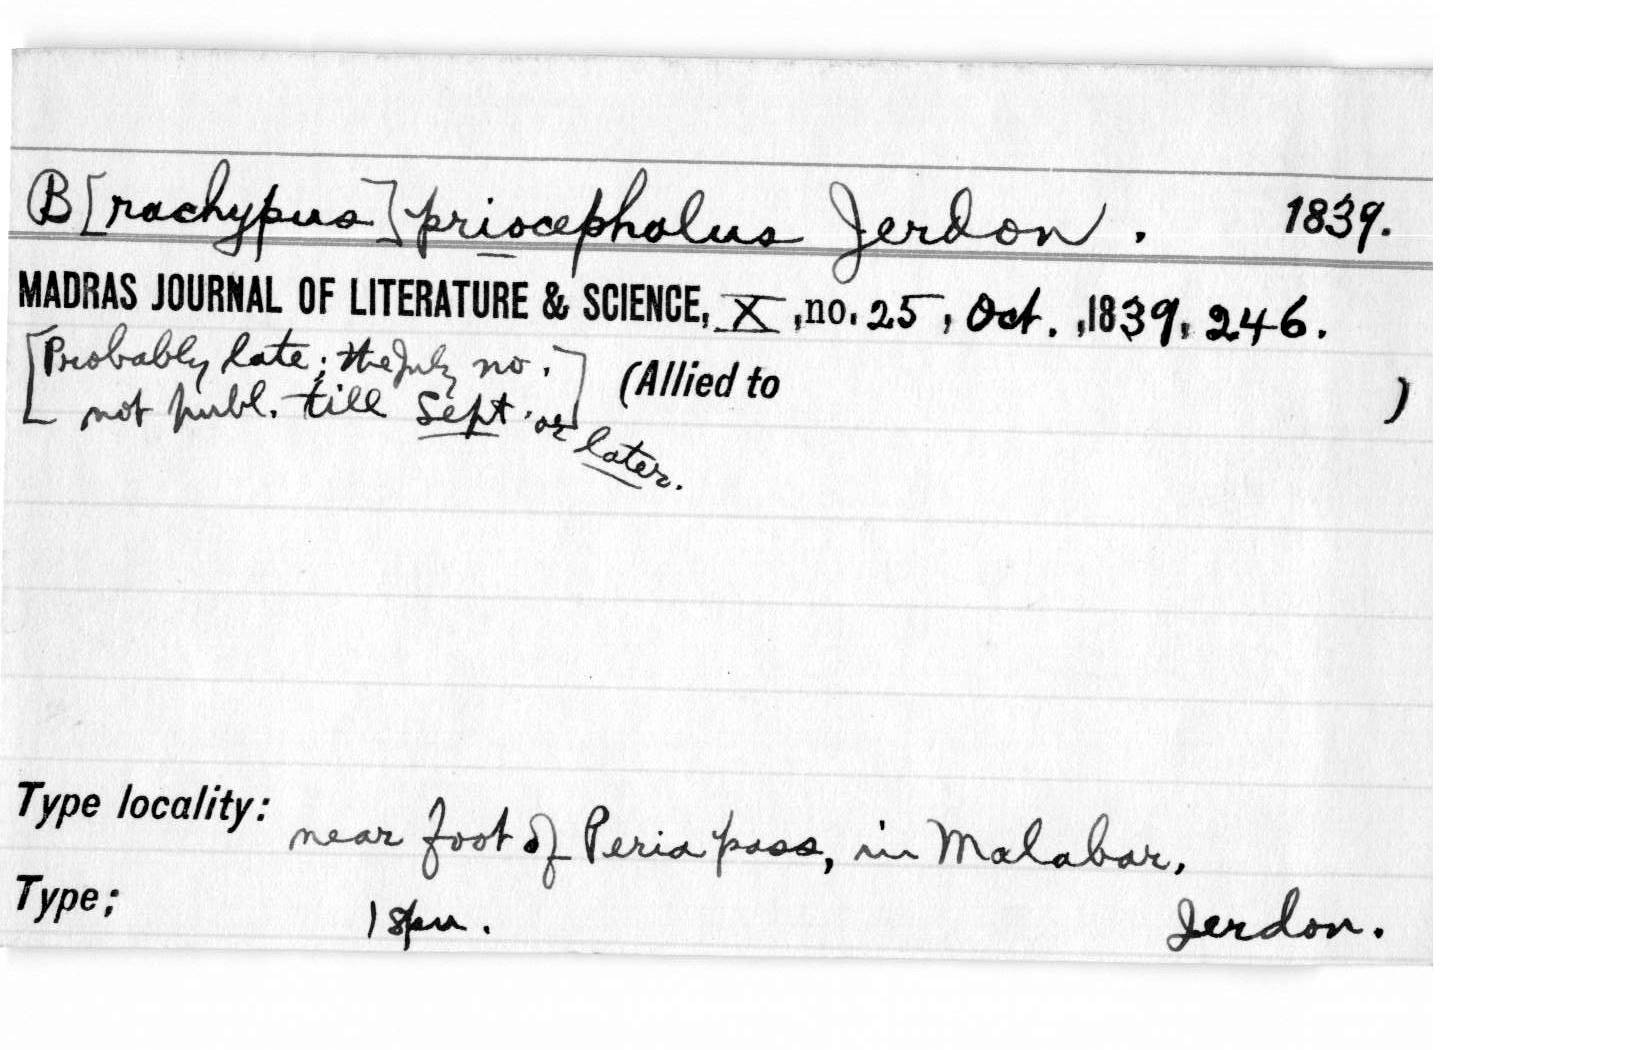 B[rachypus] priocephalus Jerdon. 1839.
MADRAS JOURNAL OF LITERATURE & SCIENCE, X, no. 25, Oct., 1839, 246.
[Probably late; the July no. (Allied to )
not publ. till Sept. or later.]
Type locality: near foot of Peria pass, in Malabar,
Type; 1 spn. Jerdon.